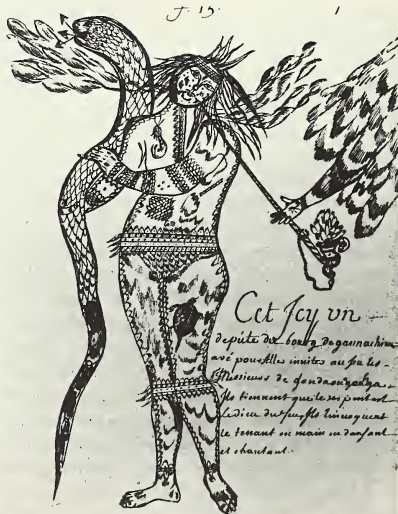 f. 15. 1
Cet Jcy un
deputé du bourg de gannachiou
avé pour aller inviter au jeu les
Messieurs de gandaouagahga.
Ils tiennent que le serpent est
le dieu du feu Ils linvoquent
le tenant en main en dansant
et chantant.